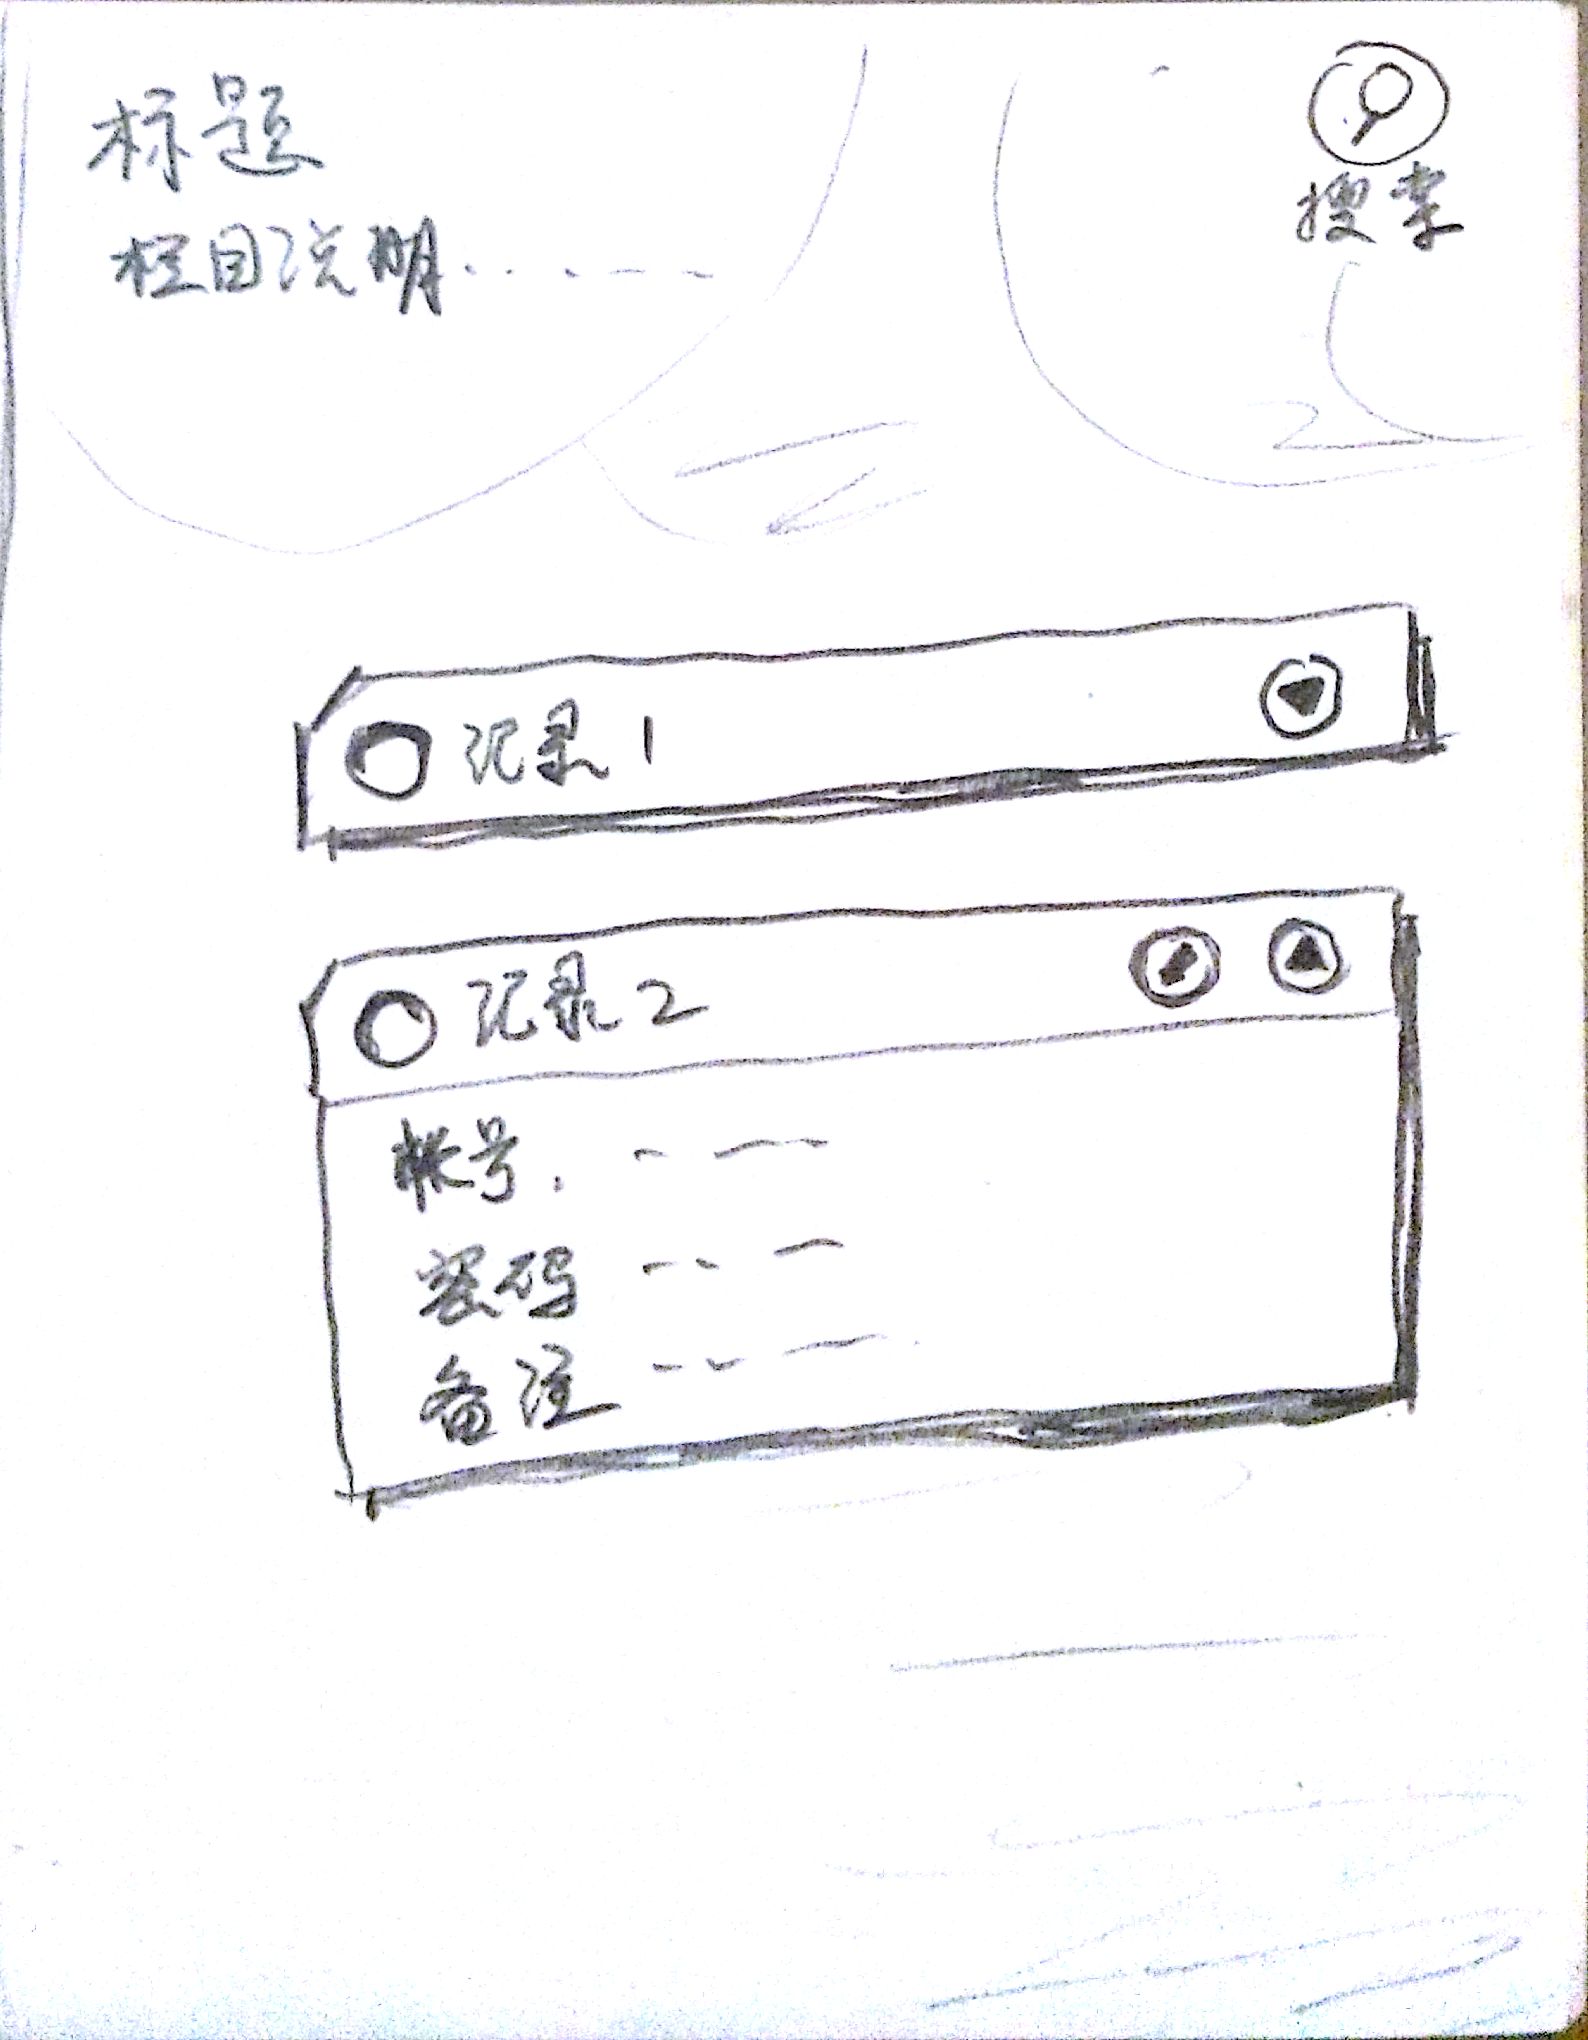 标题
搜索
栏目说明......
记录1
记录2
帐号:
密码
备注